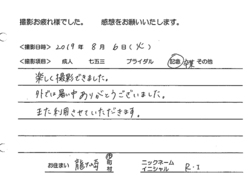 撮影お疲れ様でした。 感想をお願いいたします。
<撮影日時> 2019年 8月 6日(火)
<撮影項目> 成人 七五三 ブライダル 記念 卒業 その他
楽しく撮影できました。
外では暑い中ありがとうございました。
また利用させていただきます。
お住まい 龍ケ崎 市 ニックネーム イニシャル R・I